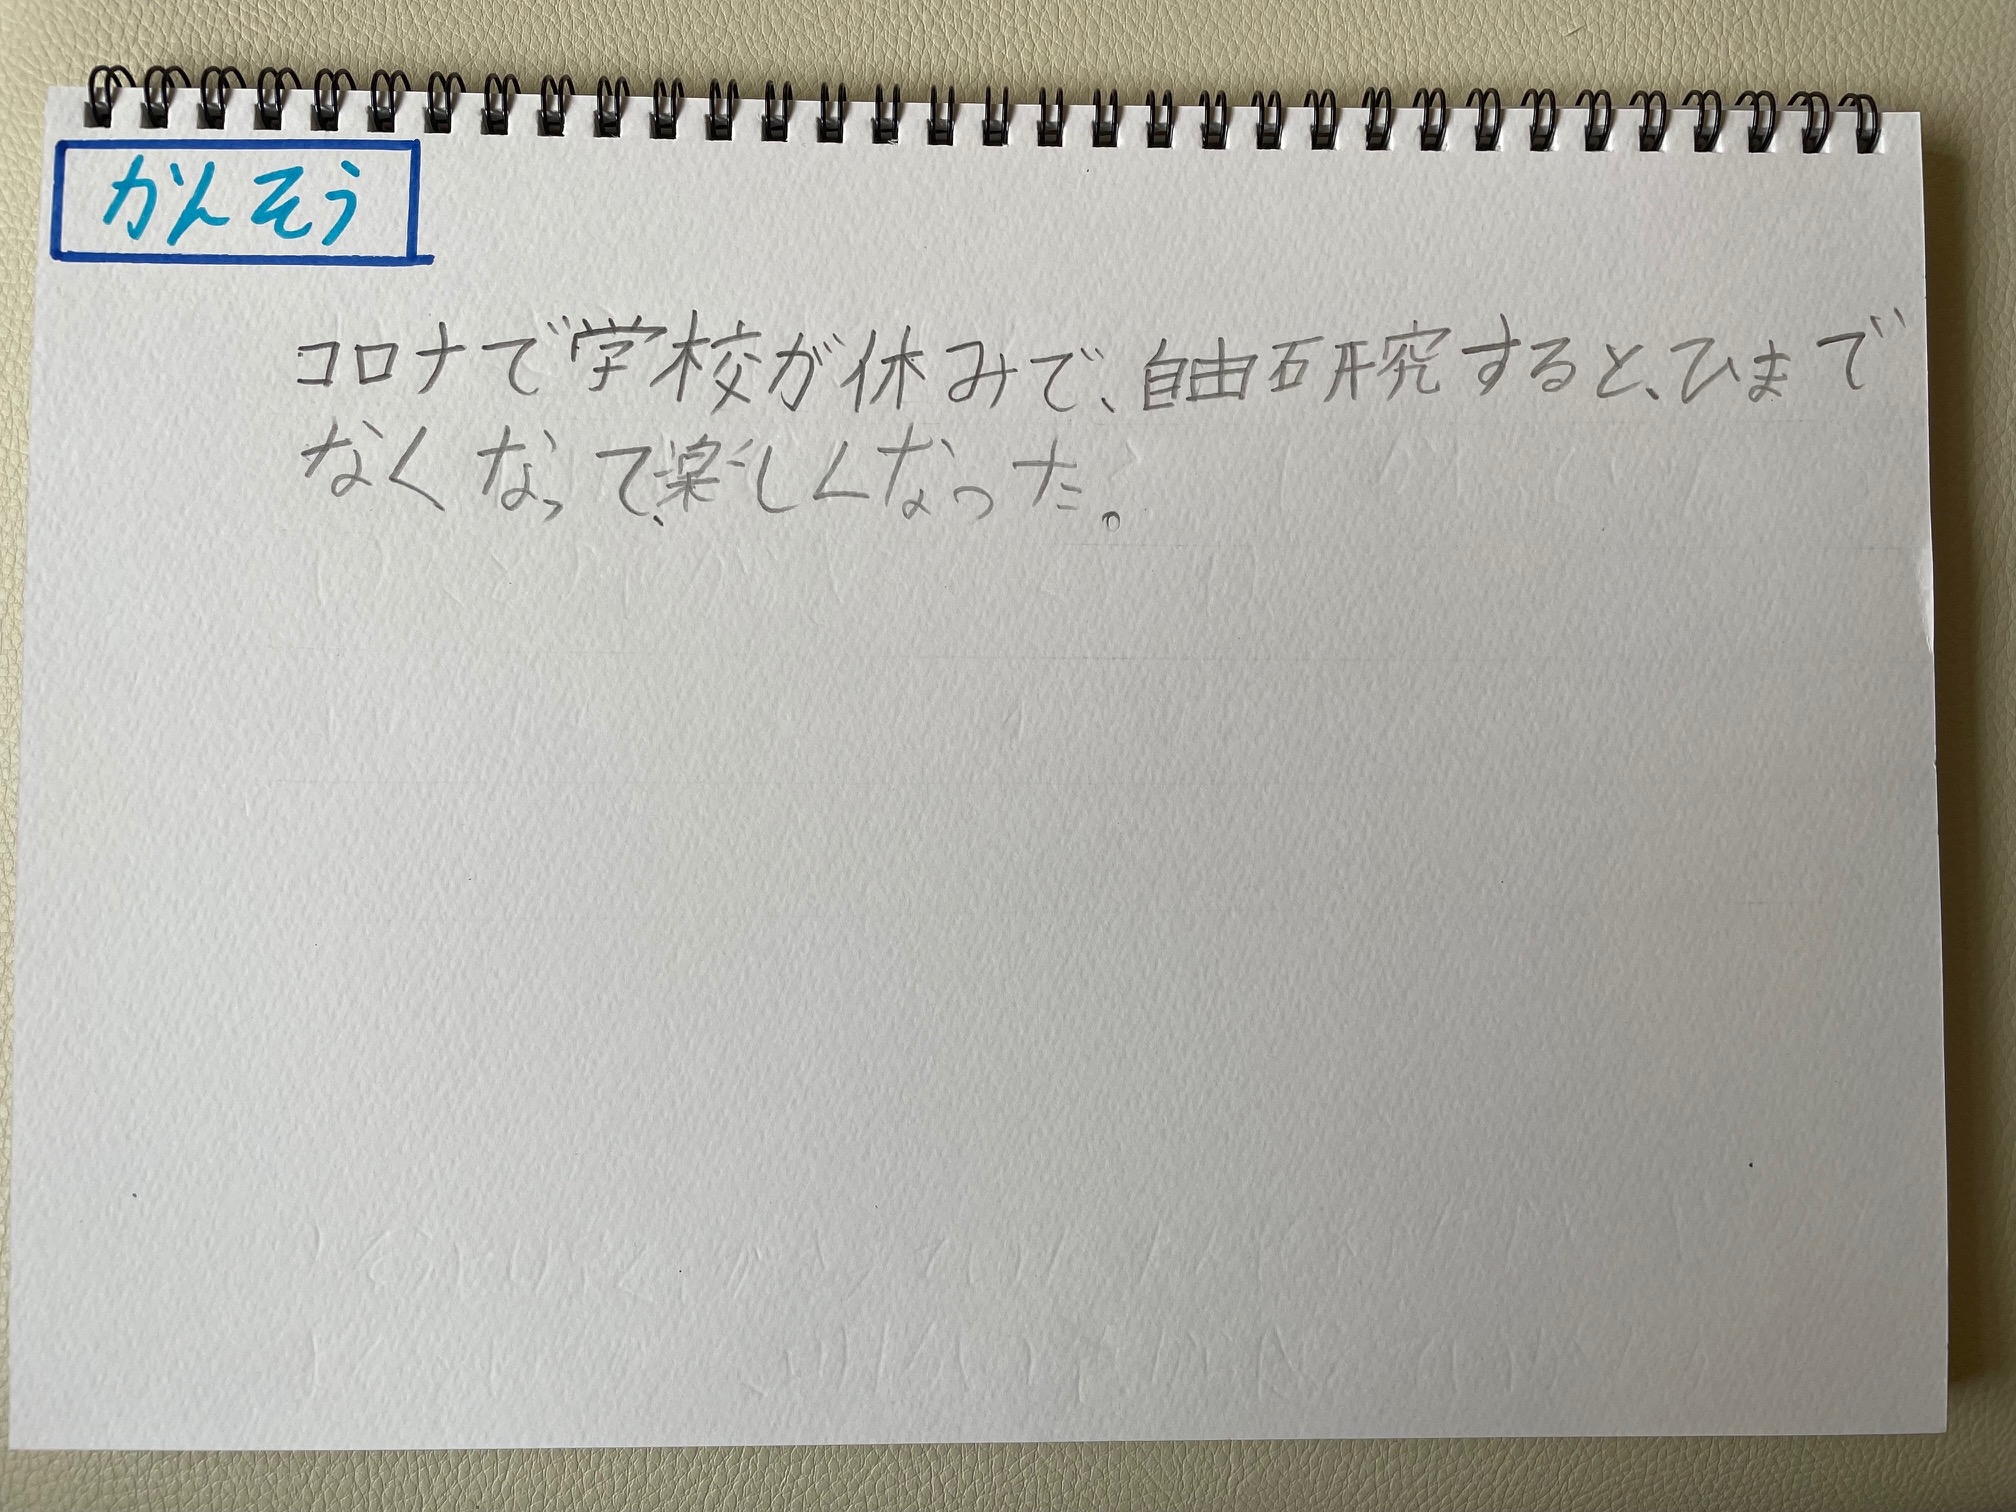 かんそう
コロナで学校が休みで、自由研究すると、ひまで
なくなって、楽しくなった。